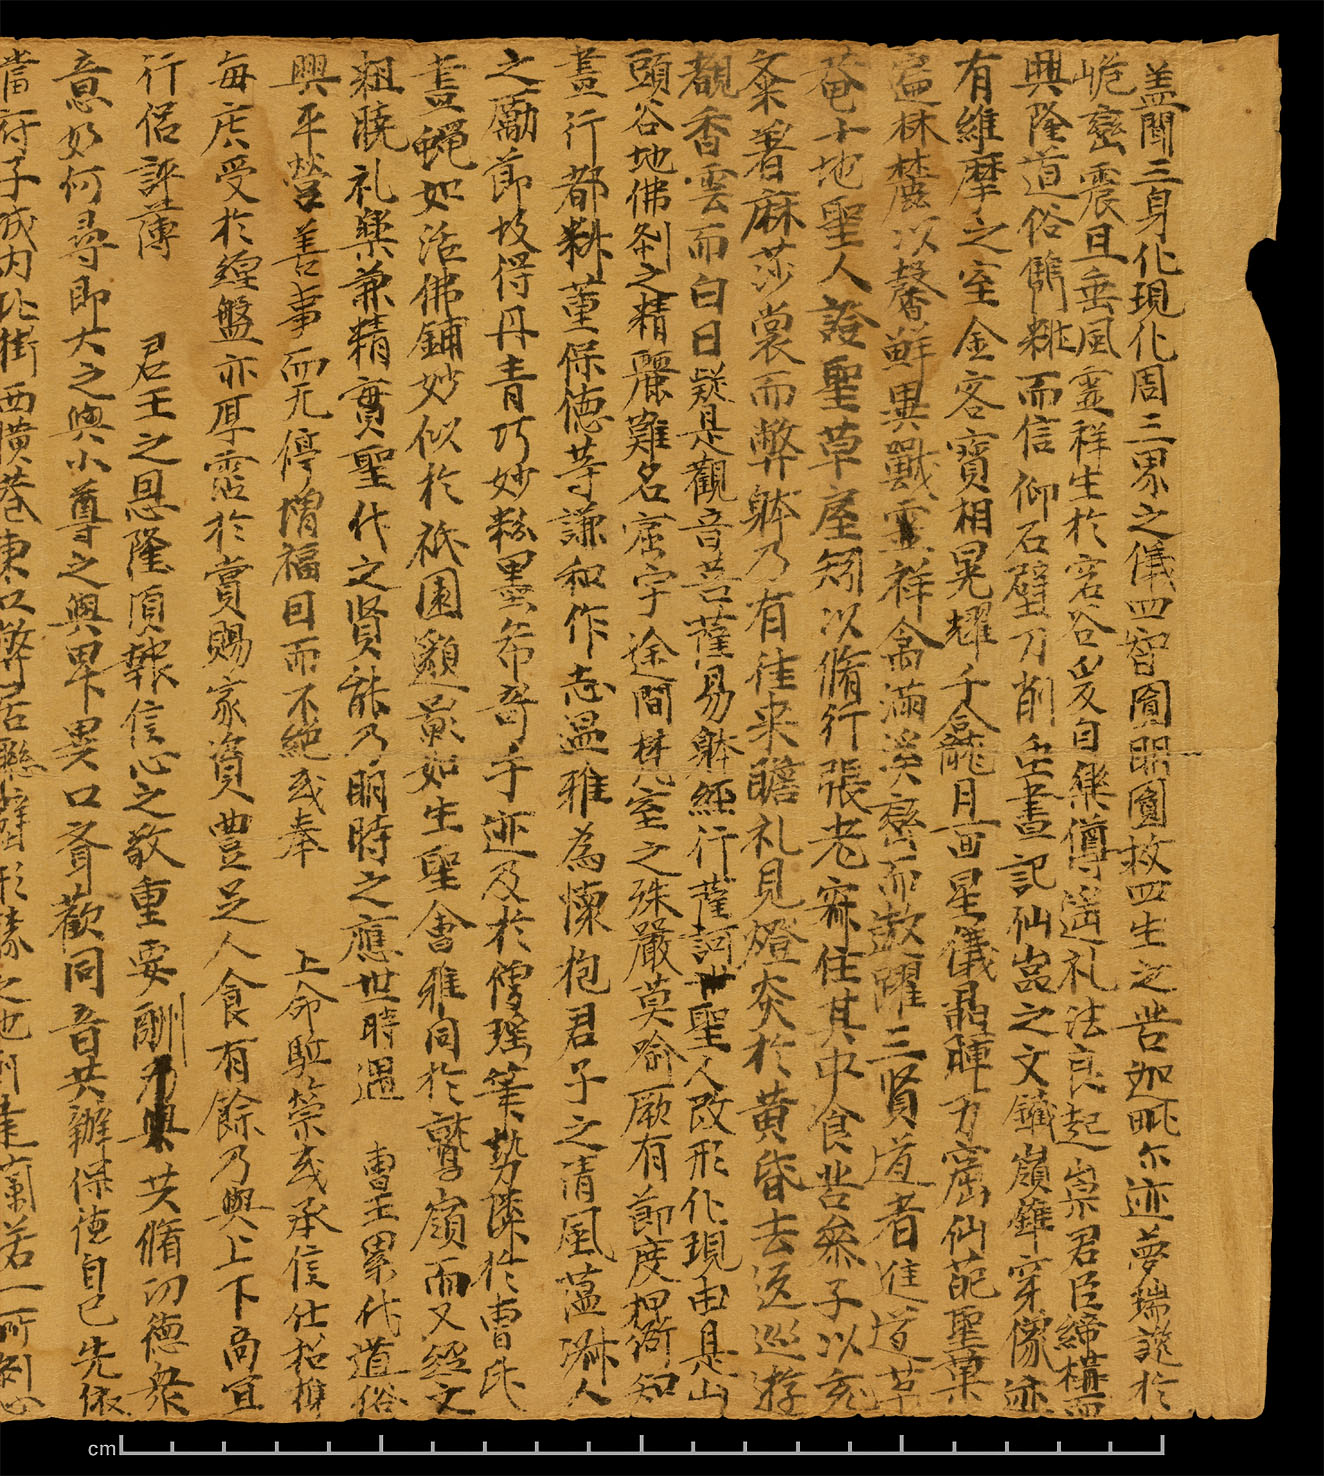 盖聞三身化現化周三界之儀四智圓明圓救四生之苦迦毗尔迹夢瑞誕於
峗巒震旦垂風霊祥生於宕谷爰自樂僔遥礼法良起崇君臣締構而
興隆道俗鐫糚而信仰石壁刀削虫書記仙嵓之文鐵嶺錐穿像迹
有維摩之室金容寳相晃耀千龕月面星儀晶暉万窟仙葩聖菓
遍林麓以馨鮮異獸霊祥禽滿溪巒而遨躍三賢道者進道草
菴十地聖人證聖草屋矧以脩行張老寐住其中食苦叅子以充
粂着麻莎裳而弊躰乃有往来瞻礼見燈炎於黄昏去返巡遊
覩香雲而白日疑是觀音菩薩易躰經行薩訶世聖人改形化現由是山
頭谷地佛刹之精麗難名窟宇途間梵室之殊嚴莫喻厥有節度押衙知
畫行都料董保徳等謙和作志温雅為懐抱君子之清風藴淋人
之勵節故得丹青巧妙粉墨希奇手迹及於僧瑶筆勢隣於曹氏
畫蝿如活佛鋪妙似於祇園邈影如生聖會雅同於鷲嶺而又經文
粗曉礼樂兼精實聖代之賢能乃明時之應世時遇 曹王累代道俗
興平營善事而无停增福因而不絶或奉 上命駈策或承信仕招携
毎广受於纒盤亦厚霑於賞賜家資豊足人食有餘乃與上下商宜
行侣評薄 君王之恩隆須報信心之敬重要酬乃與共脩切徳衆
意如何尋即大之與小尊之與卑異口齊歡同音共辦保徳自己先依
當府子城内北街西横巷東口 居聯壁形勝之地創建蘭若一所刹心